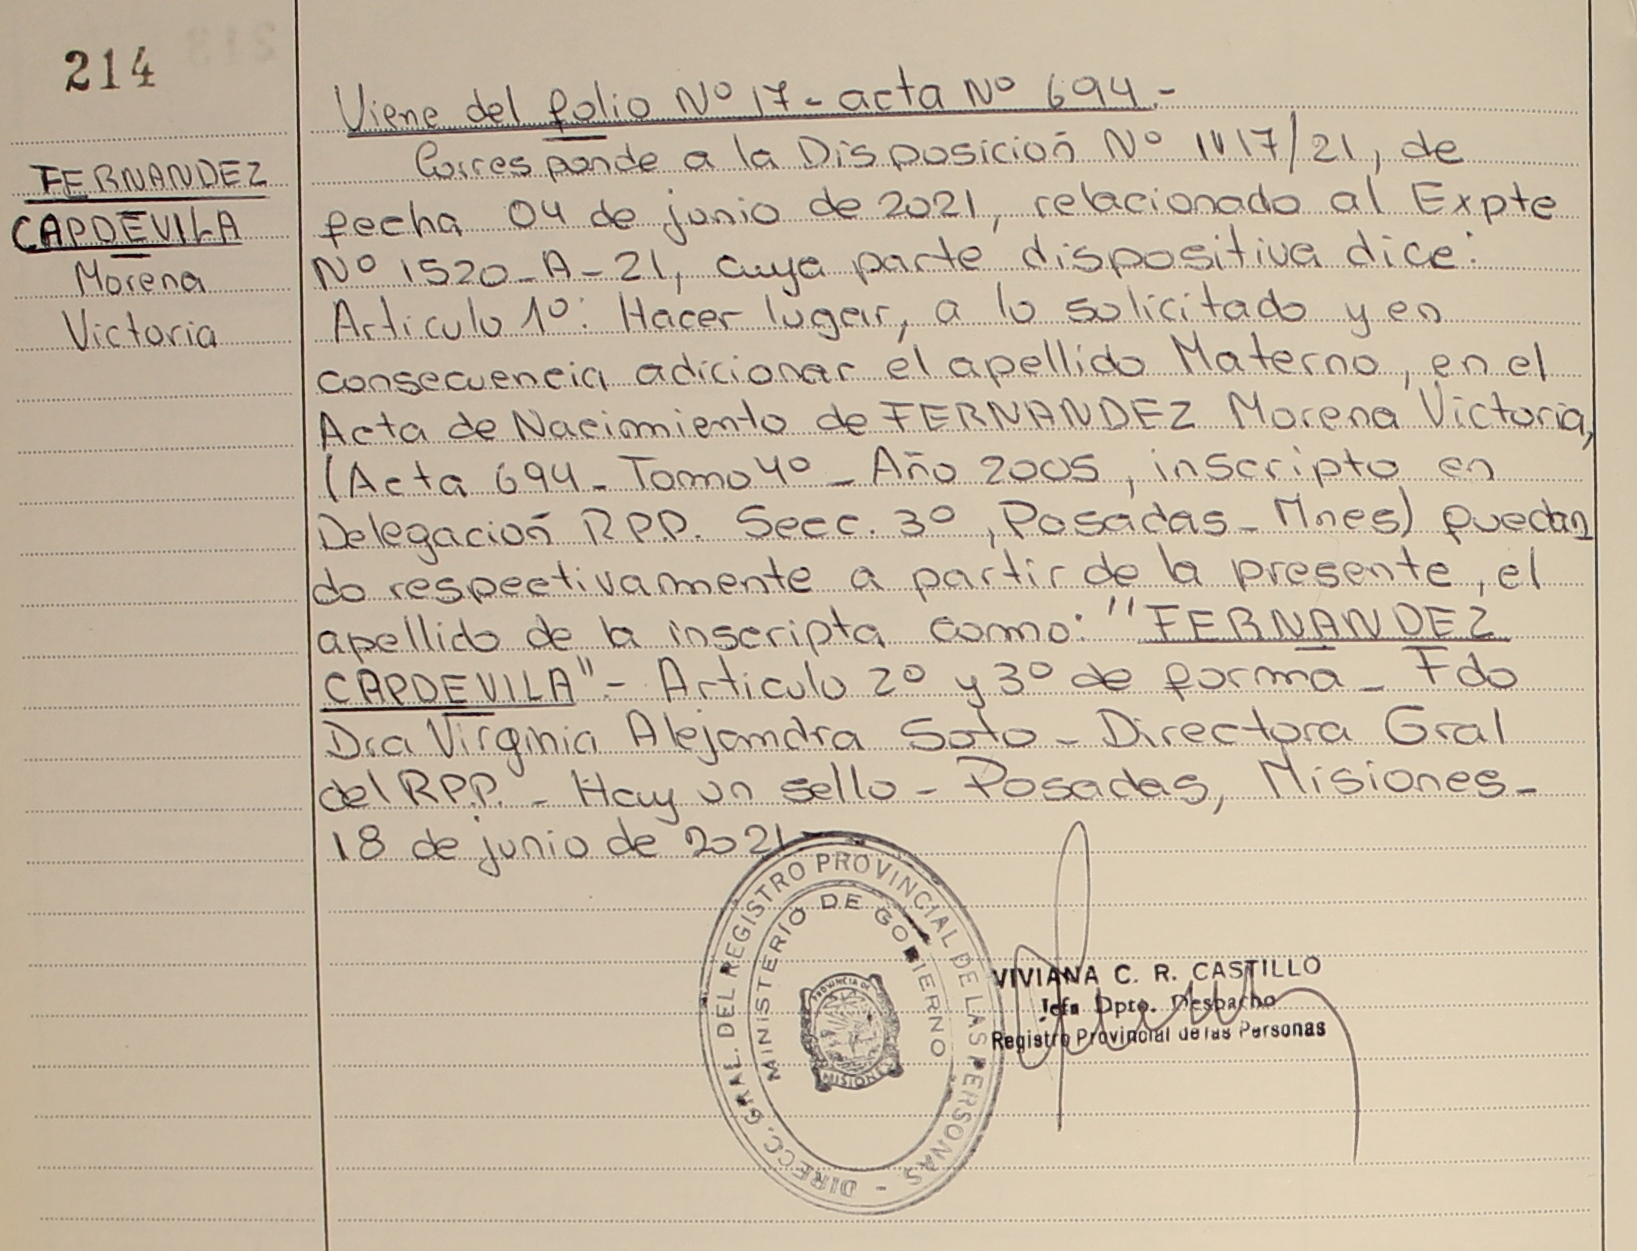 214
FERNANDEZ
CAPDEVILA
Morena
Victoria
Viene del folio Nº 17 - acta Nº 694.-
Corresponde a la Disposición Nº 1417/21, de
fecha 04 de junio de 2021, relacionado al Expte
Nº 1520-A-21, cuya parte dispositiva dice:
Articulo 1º: Hacer lugar, a lo solicitado y en
consecuencia adicionar el apellido Materno, en el
Acta de Nacimiento de FERNANDEZ Morena Victoria,
(Acta 694 - Tomo 4º - Año 2005, inscripto en
Delegación R.P.P. Secc. 3º, Posadas - Mnes) quedan
do respectivamente a partir de la presente, el
apellido de la inscripta como: "FERNANDEZ
CAPDEVILA".- Articulo 2º y 3º de forma - Fdo
Dra Virginia Alejandra Soto - Directora Gral
del R.P.P. - Hay un sello - Posadas, Misiones -
18 de junio de 2021
DIRECC. GRAL. DEL REGISTRO PROVINCIAL DE LAS PERSONAS -
MINISTERIO DE GOBIERNO
PROVINCIA DE
MISIONES
VIVIANA C. R. CASTILLO
Jefa Dpto. Despacho
Registro Provincial de las Personas